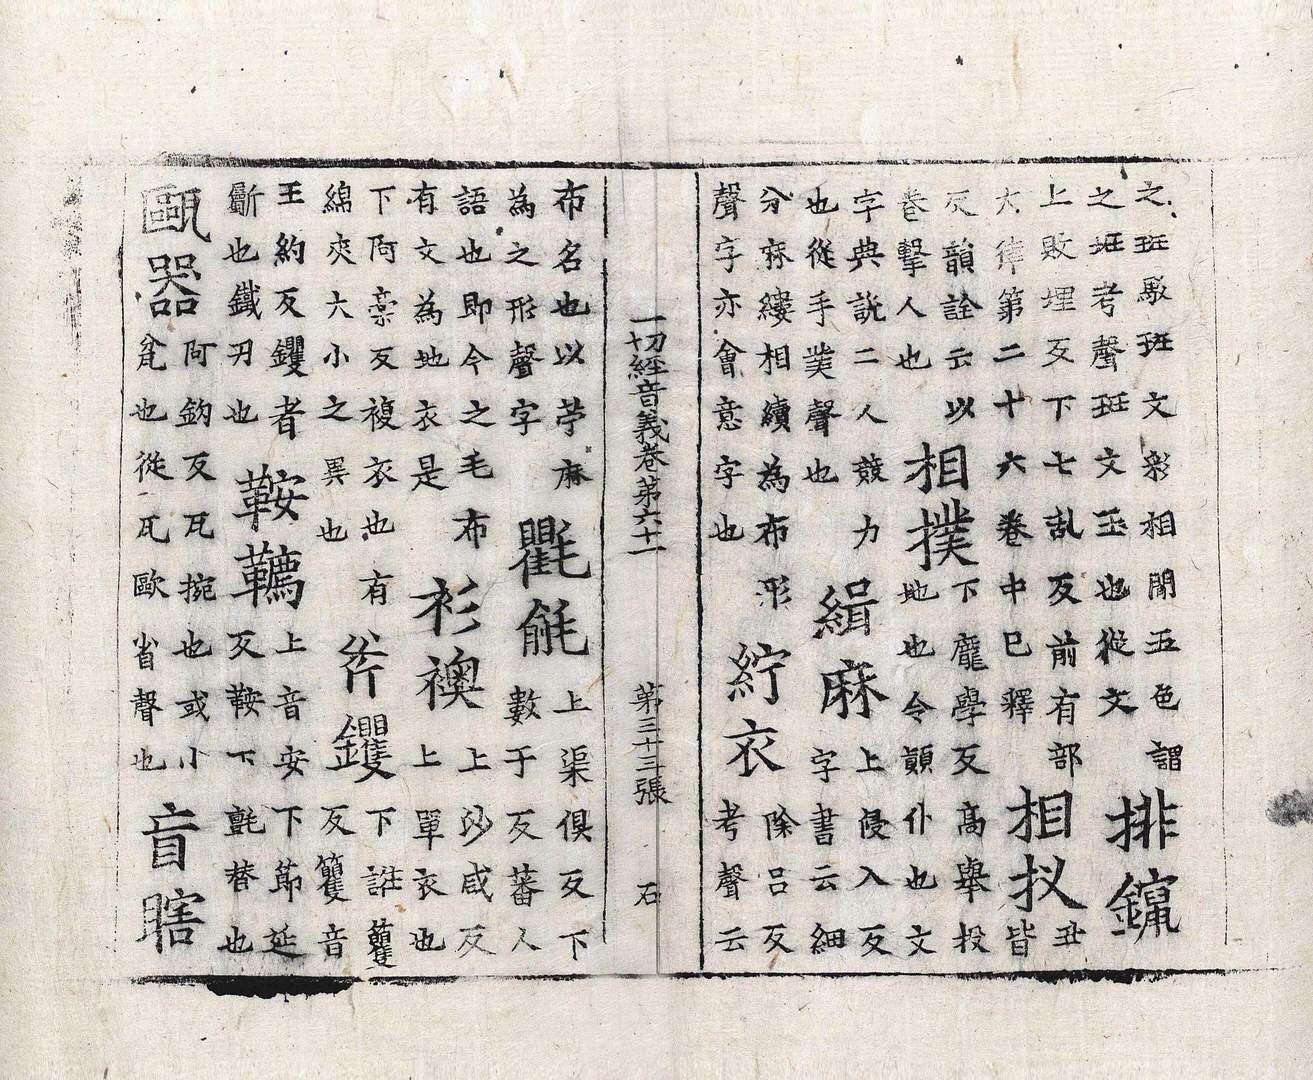 之斑駁斑文彩相間五色謂
之斑考聲斑文玉也從文
排鑹
上敗埋反下七乱反前有部
大律第二十六卷中已釋
相扠
丑
皆
反韻詮云以
卷擊人也
相撲
下龐學反高舉投
地也令顛仆也文
字典説二人競力
也從手菐聲也
緝麻
上侵入反
字書云細
分麻縷相續為布形
聲字亦會意字也
紵衣
除呂反
考聲云
一切經音義卷第六十一 第三十三張 石
布名也以苧麻
為之形聲字
氍毹
上渠俱反下
數于反蕃人
語也即今之毛布
有文為地衣是
衫襖
上沙咸反
上單衣也
下阿槀反複衣也有
綿夾大小之異也
斧钁
下誑籰
反籰音
王約反钁者
斸也鐵刃也
鞍韉
上音安下節延
反鞍下氈替也
甌器
阿鈎反瓦椀也或小
瓮也從瓦歐省聲也
盲瞎